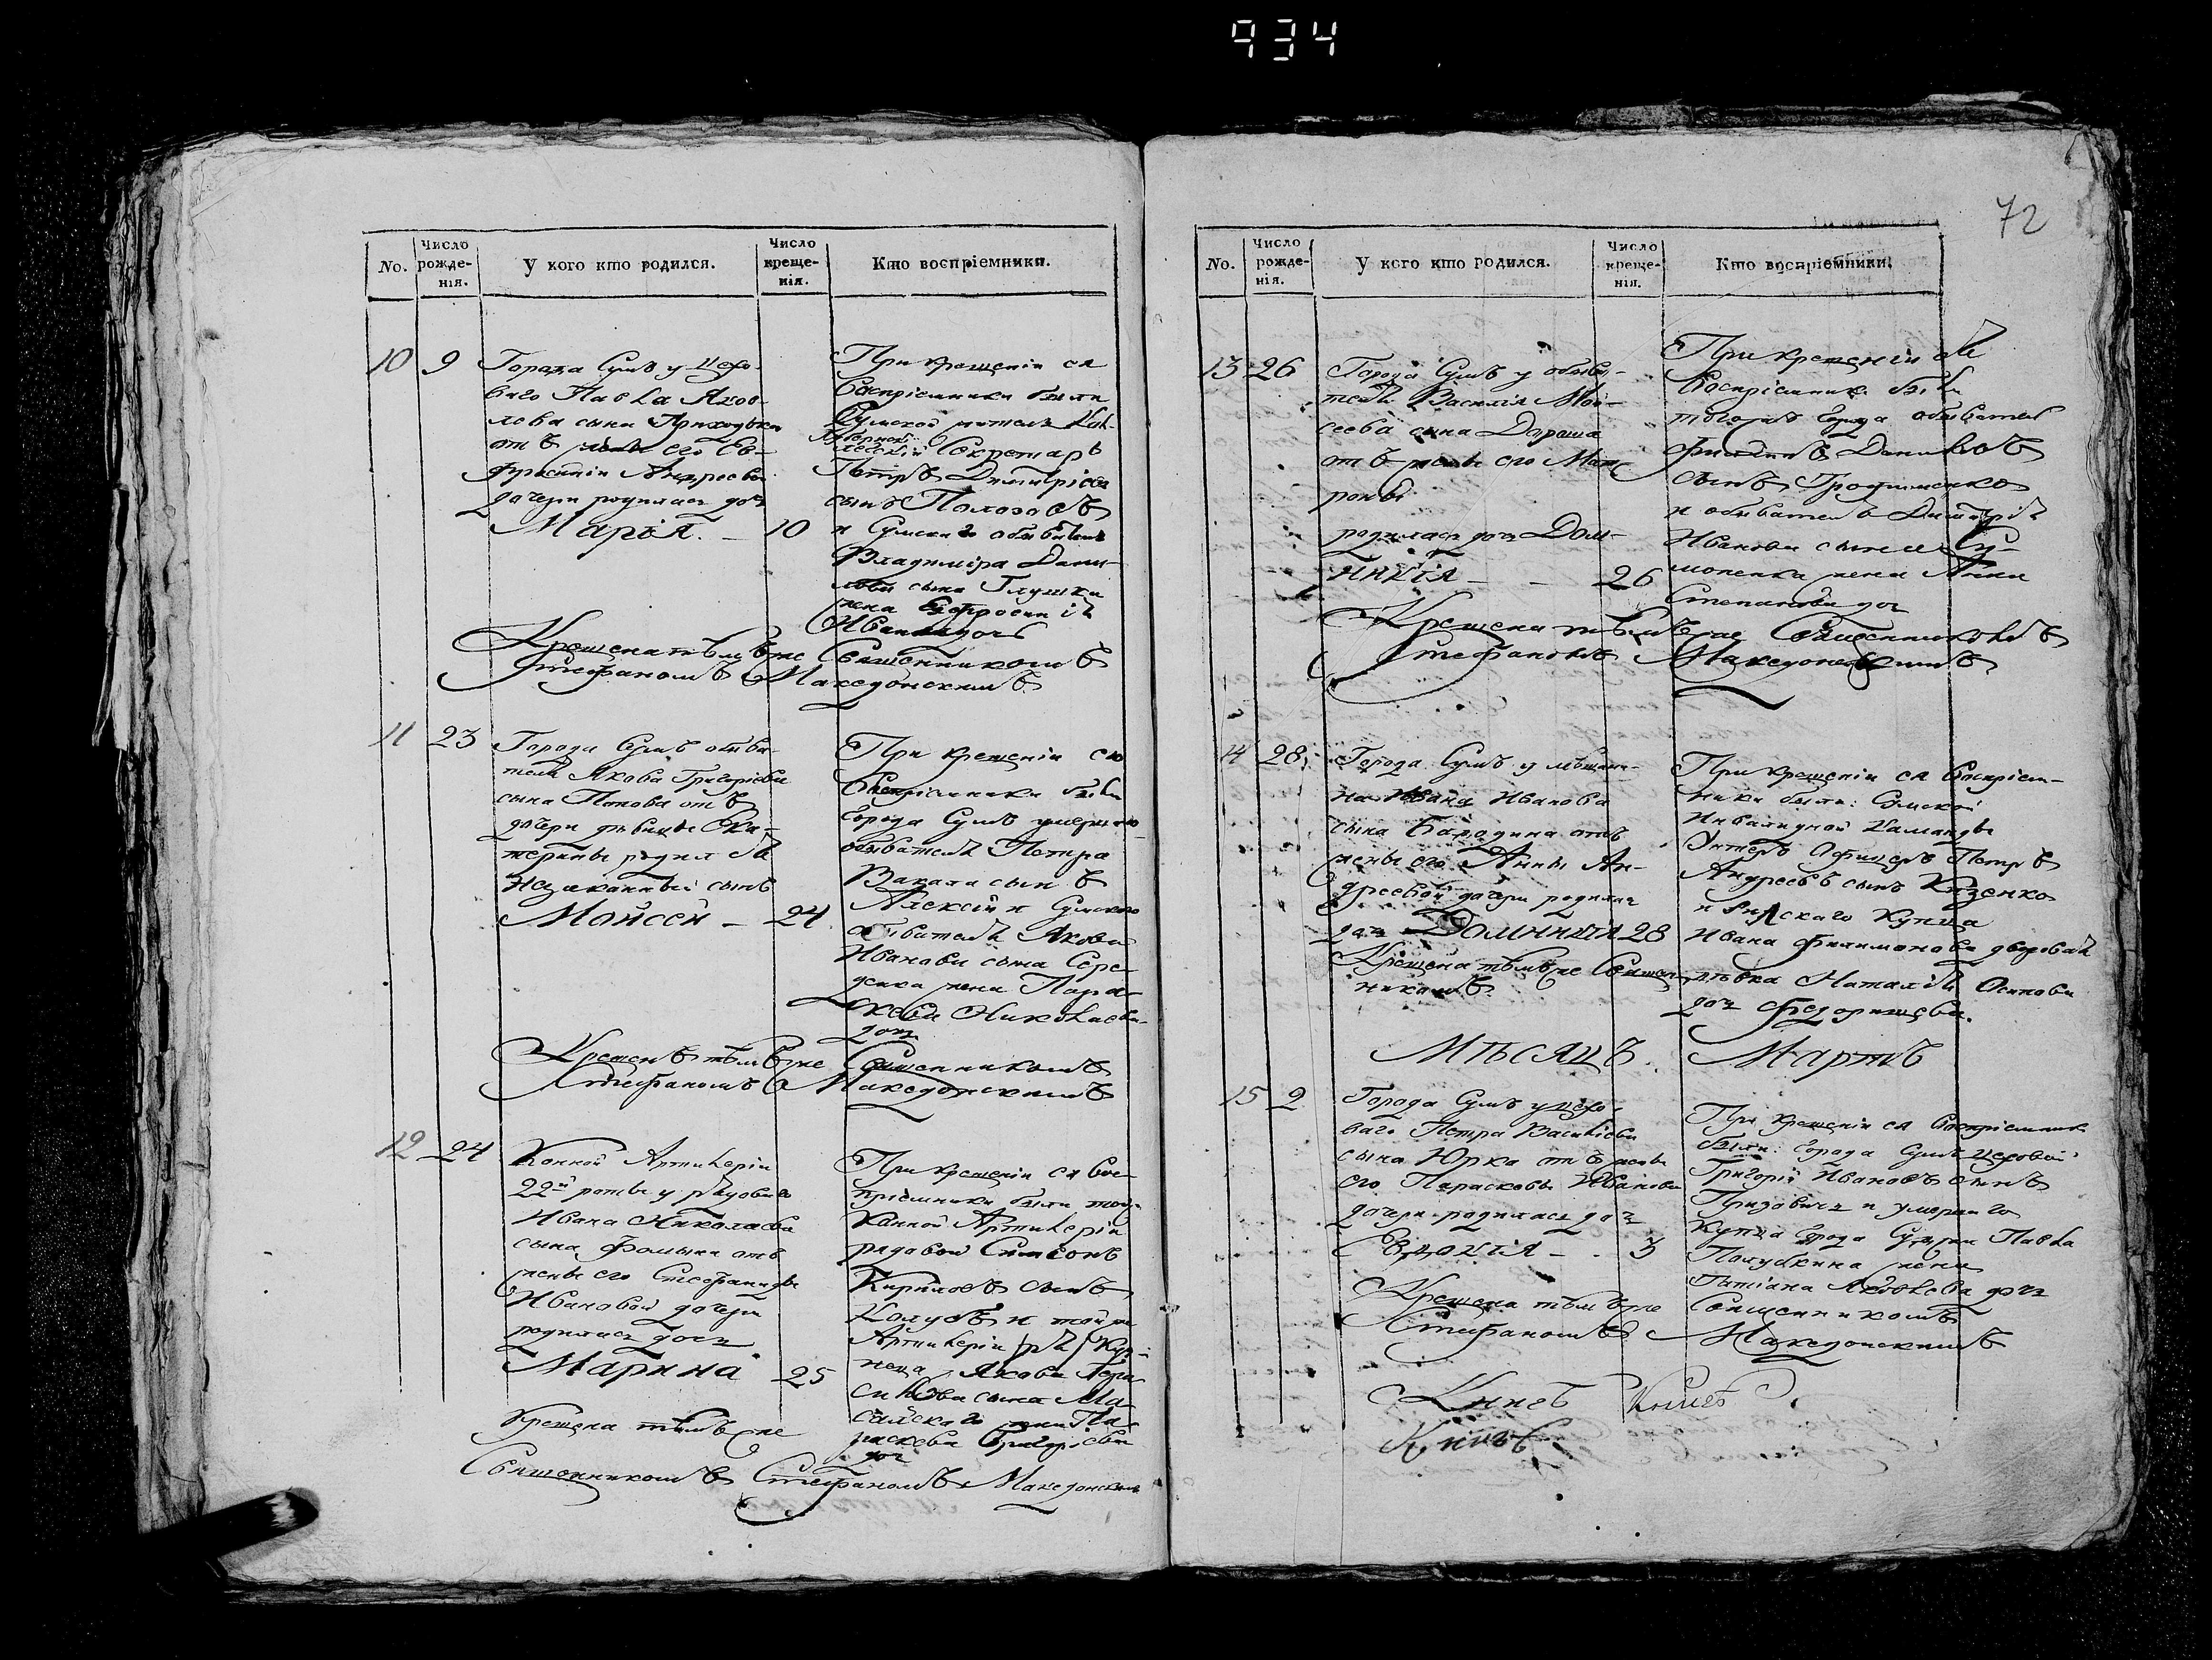 934
72
No.
Число рожде-нія.
У кого кто родился.
Число креще-нія.
Кто воспріемники.
10 9
Города Сумъ у цехо-
ваго Павла Яков-
лева сына Приходька
отъ жены его Ев-
фросиніи Андреевой
дочери родилась дочь
Марія. – 10
При крещеніи ея
Воспріемники были
Сумской житель
Губернскій
Секретарь
Петръ Димитріевъ
сынъ Полозовъ
и Сумскаго обывателя
Владиміра Дани-
лова сына Глушка
жена Ефросинія
Иванова дочь
Крещена тѣмъ же Священникомъ
Стефаномъ Македонскимъ
11 23
Города Сумъ обыва-
теля Якова Григоріева
сына Попова отъ
дочери дѣвицы Ека-
терины родился
незаконный сынъ
Мойсей – 24
При крещеніи его
Воспріемники были
города Сумъ умершаго
обывателя Петра
сынъ
Алексѣй и Сумского
обывателя Якова
Иванова сына Сере-
денка жена Пара-
скева Николаева
дочь
Крещенъ тѣмъ же Священникомъ
Стефаномъ Македонскимъ
12 24
Конной Артиллеріи
22й роты у рядоваго
Ивана Николаева
сына Фомина отъ
жены его Стефаниды
Ивановой дочери
родилась дочь
Марина 25
При крещеніи ея Вос-
пріемники были той же
Конной Артиллеріи
рядовой Симеонъ
Кириловъ сынъ
и той же
Артиллеріи
Якова Гера-
симова сына
жена Па-
раскева Григоріева
дочь
Крещена тѣмъ же
Священникомъ Стефаномъ Македонскимъ
No.
Число рожде-нія.
У кого кто родился.
Число креще-нія.
Кто воспріемники.
13 26
Города Сумъ у обыва-
теля Василія Мой-
сеева сына Дороша
отъ жены его Мат-
роны
родилась дочь Дом-
никія – – 26
При крещеніи ея
Воспріемники были
того же города обыватель
Даниловъ
сынъ Трофименко
и обывателя Димитрія
Иванова сына
жена Анна
Степанова дочь
Крещена тѣмъ же Священникомъ
Стефаномъ Македонскимъ
14 28
Города Сумъ у мѣщани-
на Ивана Иванова
сына Бародина отъ
жены его Анны Ан-
дреевой дочери родилась
дочь Домникія 28
Крещена тѣмъ же Священ-
никомъ
При крещеніи ея Воспріем-
ники были: Сумской
Инвалидной Каманды
Унтеръ Офицеръ Петръ
Андреевъ сынъ
и Купца
Ивана Филимонова дворовая
дѣвка Наталія Осипова
дочь
Мѣсяцъ Мартъ
15 2
Города Сумъ у цехо-
ваго Петра Василіева
сына Юрка отъ жены
его Парасковы Ивановой
дочери родилась дочь
Евдокія – . 3
При крещеніи ея Воспріемники
были: Города Сумъ цеховой
Григорій Ивановъ сынъ
и умершаго
Купца города Сумъ Павла
Полубкина жена
Татіана Яковлева дочь
Крещена тѣмъ же Священникомъ
Стефаномъ Македонскимъ